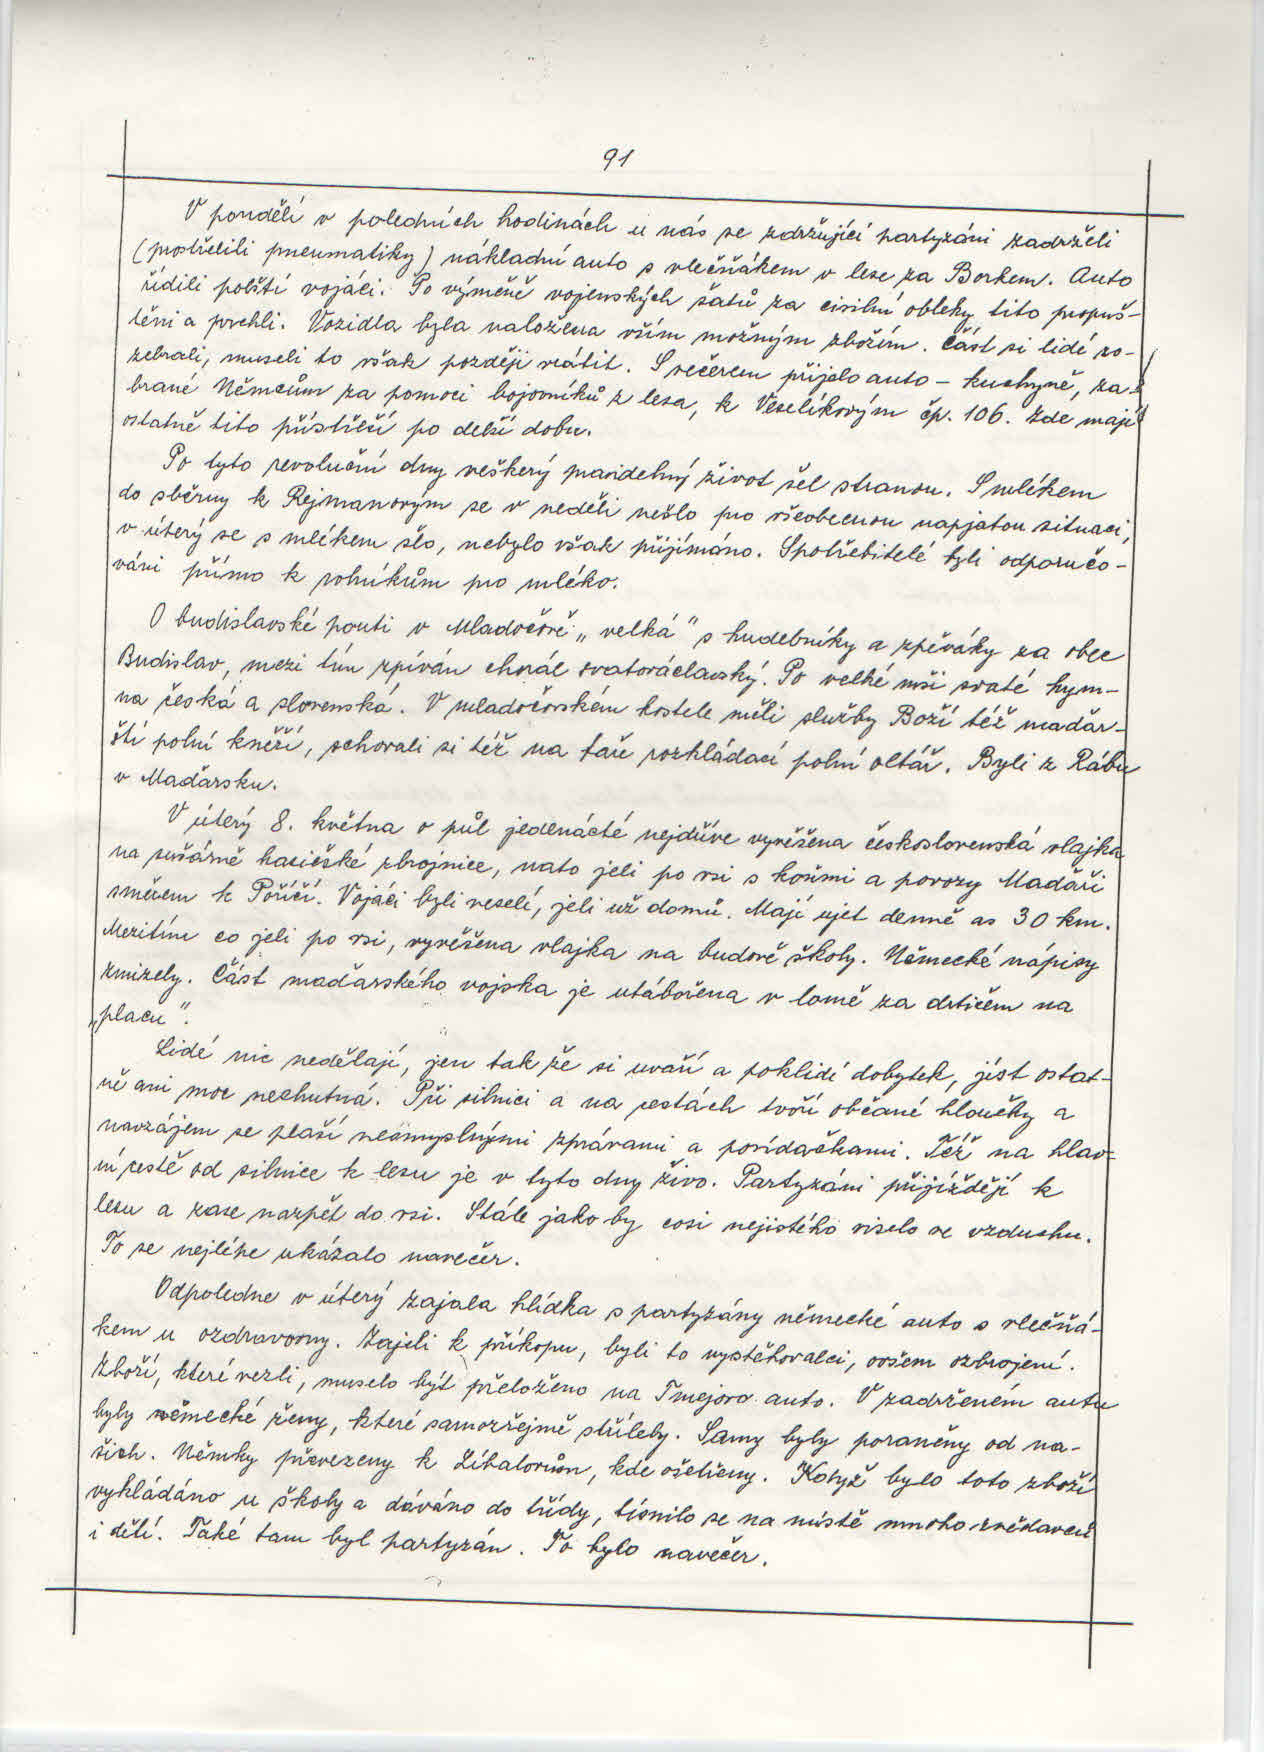 91
V pondělí v poledních hodinách u nás se zdržující partyzáni zadrželi
(prostřelili pneumatiky) nákladní auto s vlečňákem v lese za Borkem. Auto
řídili polští vojáci. Po výměně vojenských šatů za civilní obleky tito propuš-
těni a prchli. Vozidla byla naložena vším možným zbožím. Část si lidé ro-
zebrali, museli to však později vrátit. S večerem přijelo auto - kuchyně, za-
brané Němcům za pomoci bojovníků z lesa, k Veselíkovým čp. 106. Zde mají
ostatně tito přístřeší po delší dobu.
Po tyto revoluční dny veškerý pravidelný život šel stranou. S mlékem
do sběrny k Rejmanovým se v neděli nešlo pro všeobecnou napjatou situaci,
v úterý se s mlékem šlo, nebylo však přijímáno. Spotřebitelé byli odporučo-
váni přímo k rolníkům pro mléko.
O budislavské pouti v Mladočově „velká" s hudebníky a zpěváky za obec
Budislav, mezi tím zpíván chorál svatováclavský. Po velké mši svaté hym-
na česká a slovenská. V mladočovském kostele měli služby Boží též maďar-
ští polní kněží, schovali si též na faře rozkládací polní oltář. Byli z Rábu
v Maďarsku.
V úterý 8. května o půl jedenácté nejdříve vyvěšena československá vlajka
na sušárně hasičské zbrojnice, nato jeli po vsi s koňmi a povozy Maďaři
směrem k Poříčí. Vojáci byli veselí, jeli už domů. Mají ujet denně as 30 km.
Mezitím co jeli po vsi, vyvěšena vlajka na budově školy. Německé nápisy
zmizely. Část maďarského vojska je utábořena v lomě za drtičem na
„placu".
Lidé nic nedělají, jen tak že si uvaří a poklidí dobytek, jíst ostat-
ně ani moc nechutná. Při silnici a na cestách tvoří občané hloučky a
navzájem se plaší nesmyslnými zprávami a povídačkami. Též na hlav-
ní cestě od silnice k lesu je v tyto dny živo. Partyzáni přijíždějí k
lesu a zase nazpět do vsi. Stále jako by cosi nejistého viselo ve vzduchu.
To se nejlépe ukázalo navečer.
Odpoledne v úterý zajala hlídka s partyzány německé auto s vlečňá-
kem u ozdravovny. Zajeli k příkopu, byli to vystěhovalci, ovšem ozbrojení.
Zboží, které vezli, muselo být přeloženo na Tmejovo auto. V zadrženém autu
byly německé ženy, které samozřejmě střílely. Samy byly poraněny od na-
šich. Němky převezeny k Líbalovům, kde ošetřeny. Když bylo toto zboží
vykládáno u školy a dáváno do třídy, tísnilo se na místě mnoho zvědavců
i dětí. Také tam byl partyzán. To bylo navečer.